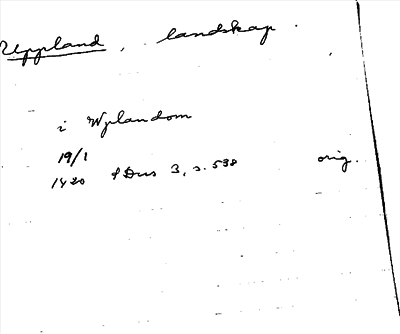 Uppland, landskap.
i Wplandom
19/1
1420 SDns 3, s. 538 orig.